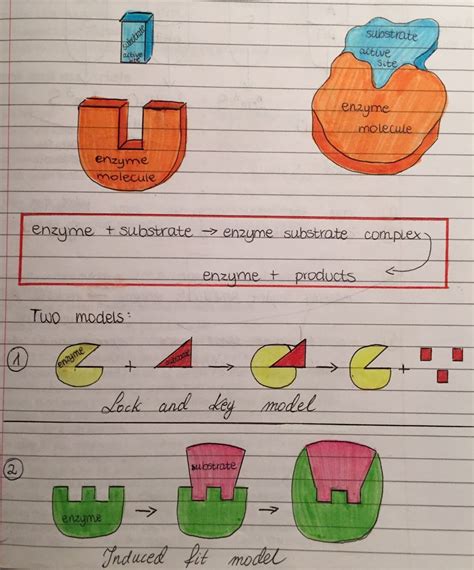 substrate
active
site
enzyme
molecule
substrate
ative
site
enzyme
molecule
enzyme + substrate → enzyme substrate complex
enzyme + products
Two models:
1
enzyme
+
substrate
→
→
+
Lock and key model
2
enzyme
→
substrate
→
Induced fit model